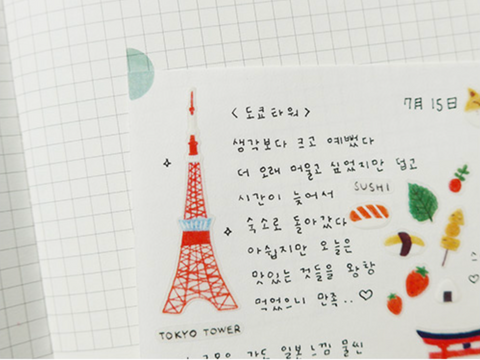 7月 15日
< 도쿄 타워 >
생각보다 크고 예뻤다
더 오래 머물고 싶었지만 덥고
시간이 늦어서
숙소로 돌아갔다
아쉽지만 오늘은
맛있는 것들을 왕창
먹었으니 만족.. ♡
SUSHI
TOKYO TOWER
가도 일본 느낌 물씬